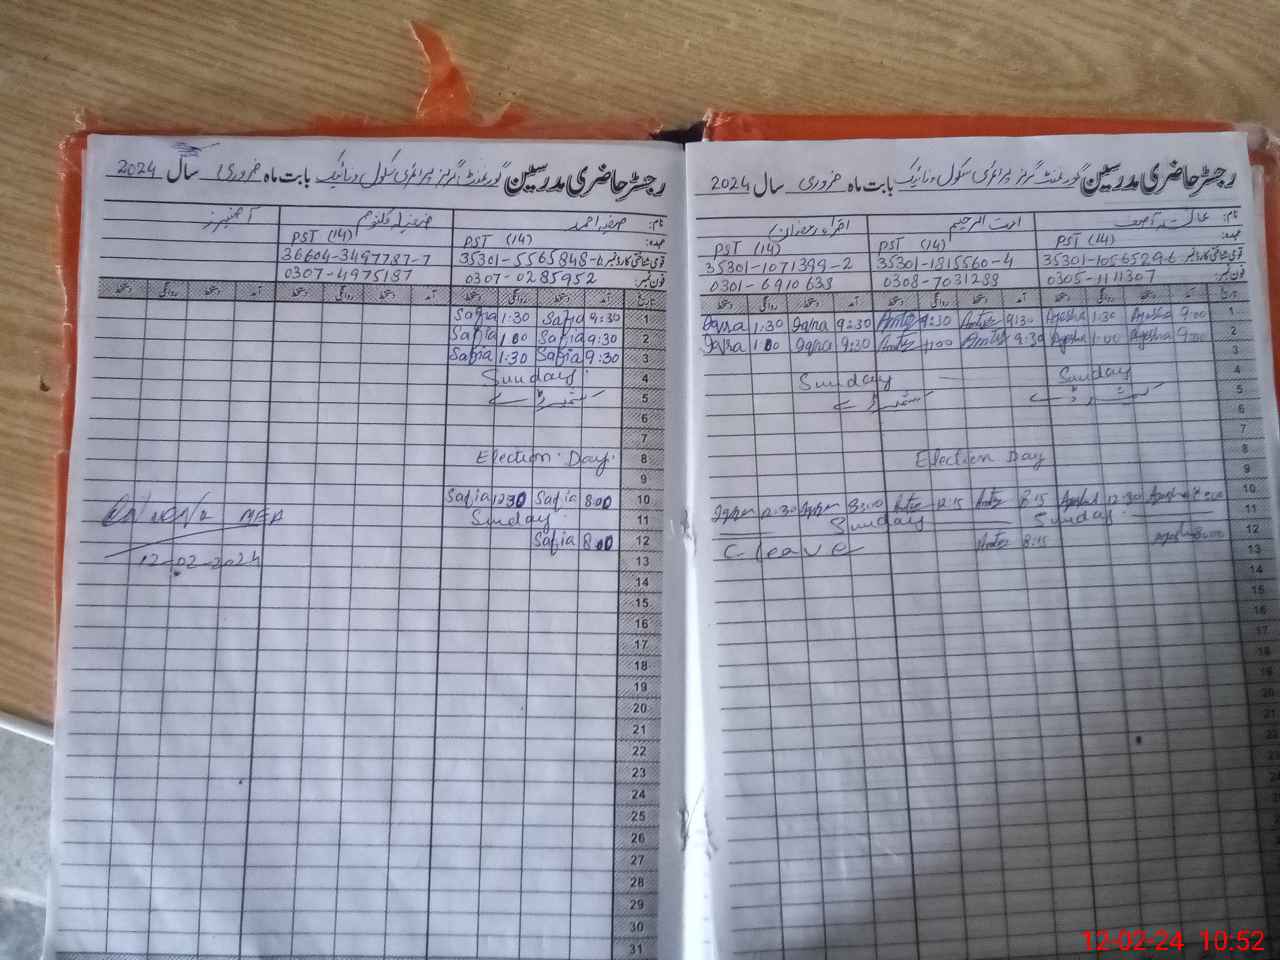 رجسٹر حاضری مدرسین گورنمنٹ گرلز پرائمری سکول ونائیک بابت ماہ فروری سال 2024
نام: عائشہ آصف امت الرحیم اقراء رمضان
عہدہ: PST (14) PST (14) PST (14)
قومی شناختی کارڈ نمبر 35301-1815560-4 35301-1071399-2
فون نمبر: 0305-1111307 0308-7031289 0301-6910639
تاریخ آمد دستخط روانگی دستخط آمد دستخط روانگی دستخط آمد دستخط روانگی دستخط
1 9:00 Ayesha 1:30 Ayesha 9:30 9:30 Iqra 1:30 Iqra
2 9:00 Ayesha 1:00 Ayesha 9:30 1:00 9:30 Iqra 1:00 Iqra
3
4 Sunday Sunday
5
6
7
8 Election Day
9
10 12:30 8:15 12:15 8:00 12:30
11 Sunday Sunday
12 8:00 8:15 C leave
13
14
15
16
17
18
19
20
21
22
23
24
25
26
27
28
29
30
رجسٹر حاضری مدرسین گورنمنٹ گرلز پرائمری سکول ونائیک بابت ماہ فروری سال 2024
نام: صفیہ احمد
عہدہ: PST (14) PST (14)
قومی شناختی کارڈ نمبر 36604-3497787-7
فون نمبر: 0307-0285952 0307-4975187
تاریخ آمد دستخط روانگی دستخط آمد دستخط روانگی دستخط آمد دستخط روانگی دستخط
1 9:30 Safia 1:30 Safia
2 9:30 Safia 1:00 Safia
3 9:30 Safia 1:30 Safia
4 Sunday
5
6
7
8 Election Day
9
10 8:00 Safia 12:30 Safia
11 Sunday
12 8:00 Safia
13 12-02-2024
14
15
16
17
18
19
20
21
22
23
24
25
26
27
28
29
30
31
12-02-24 10:52